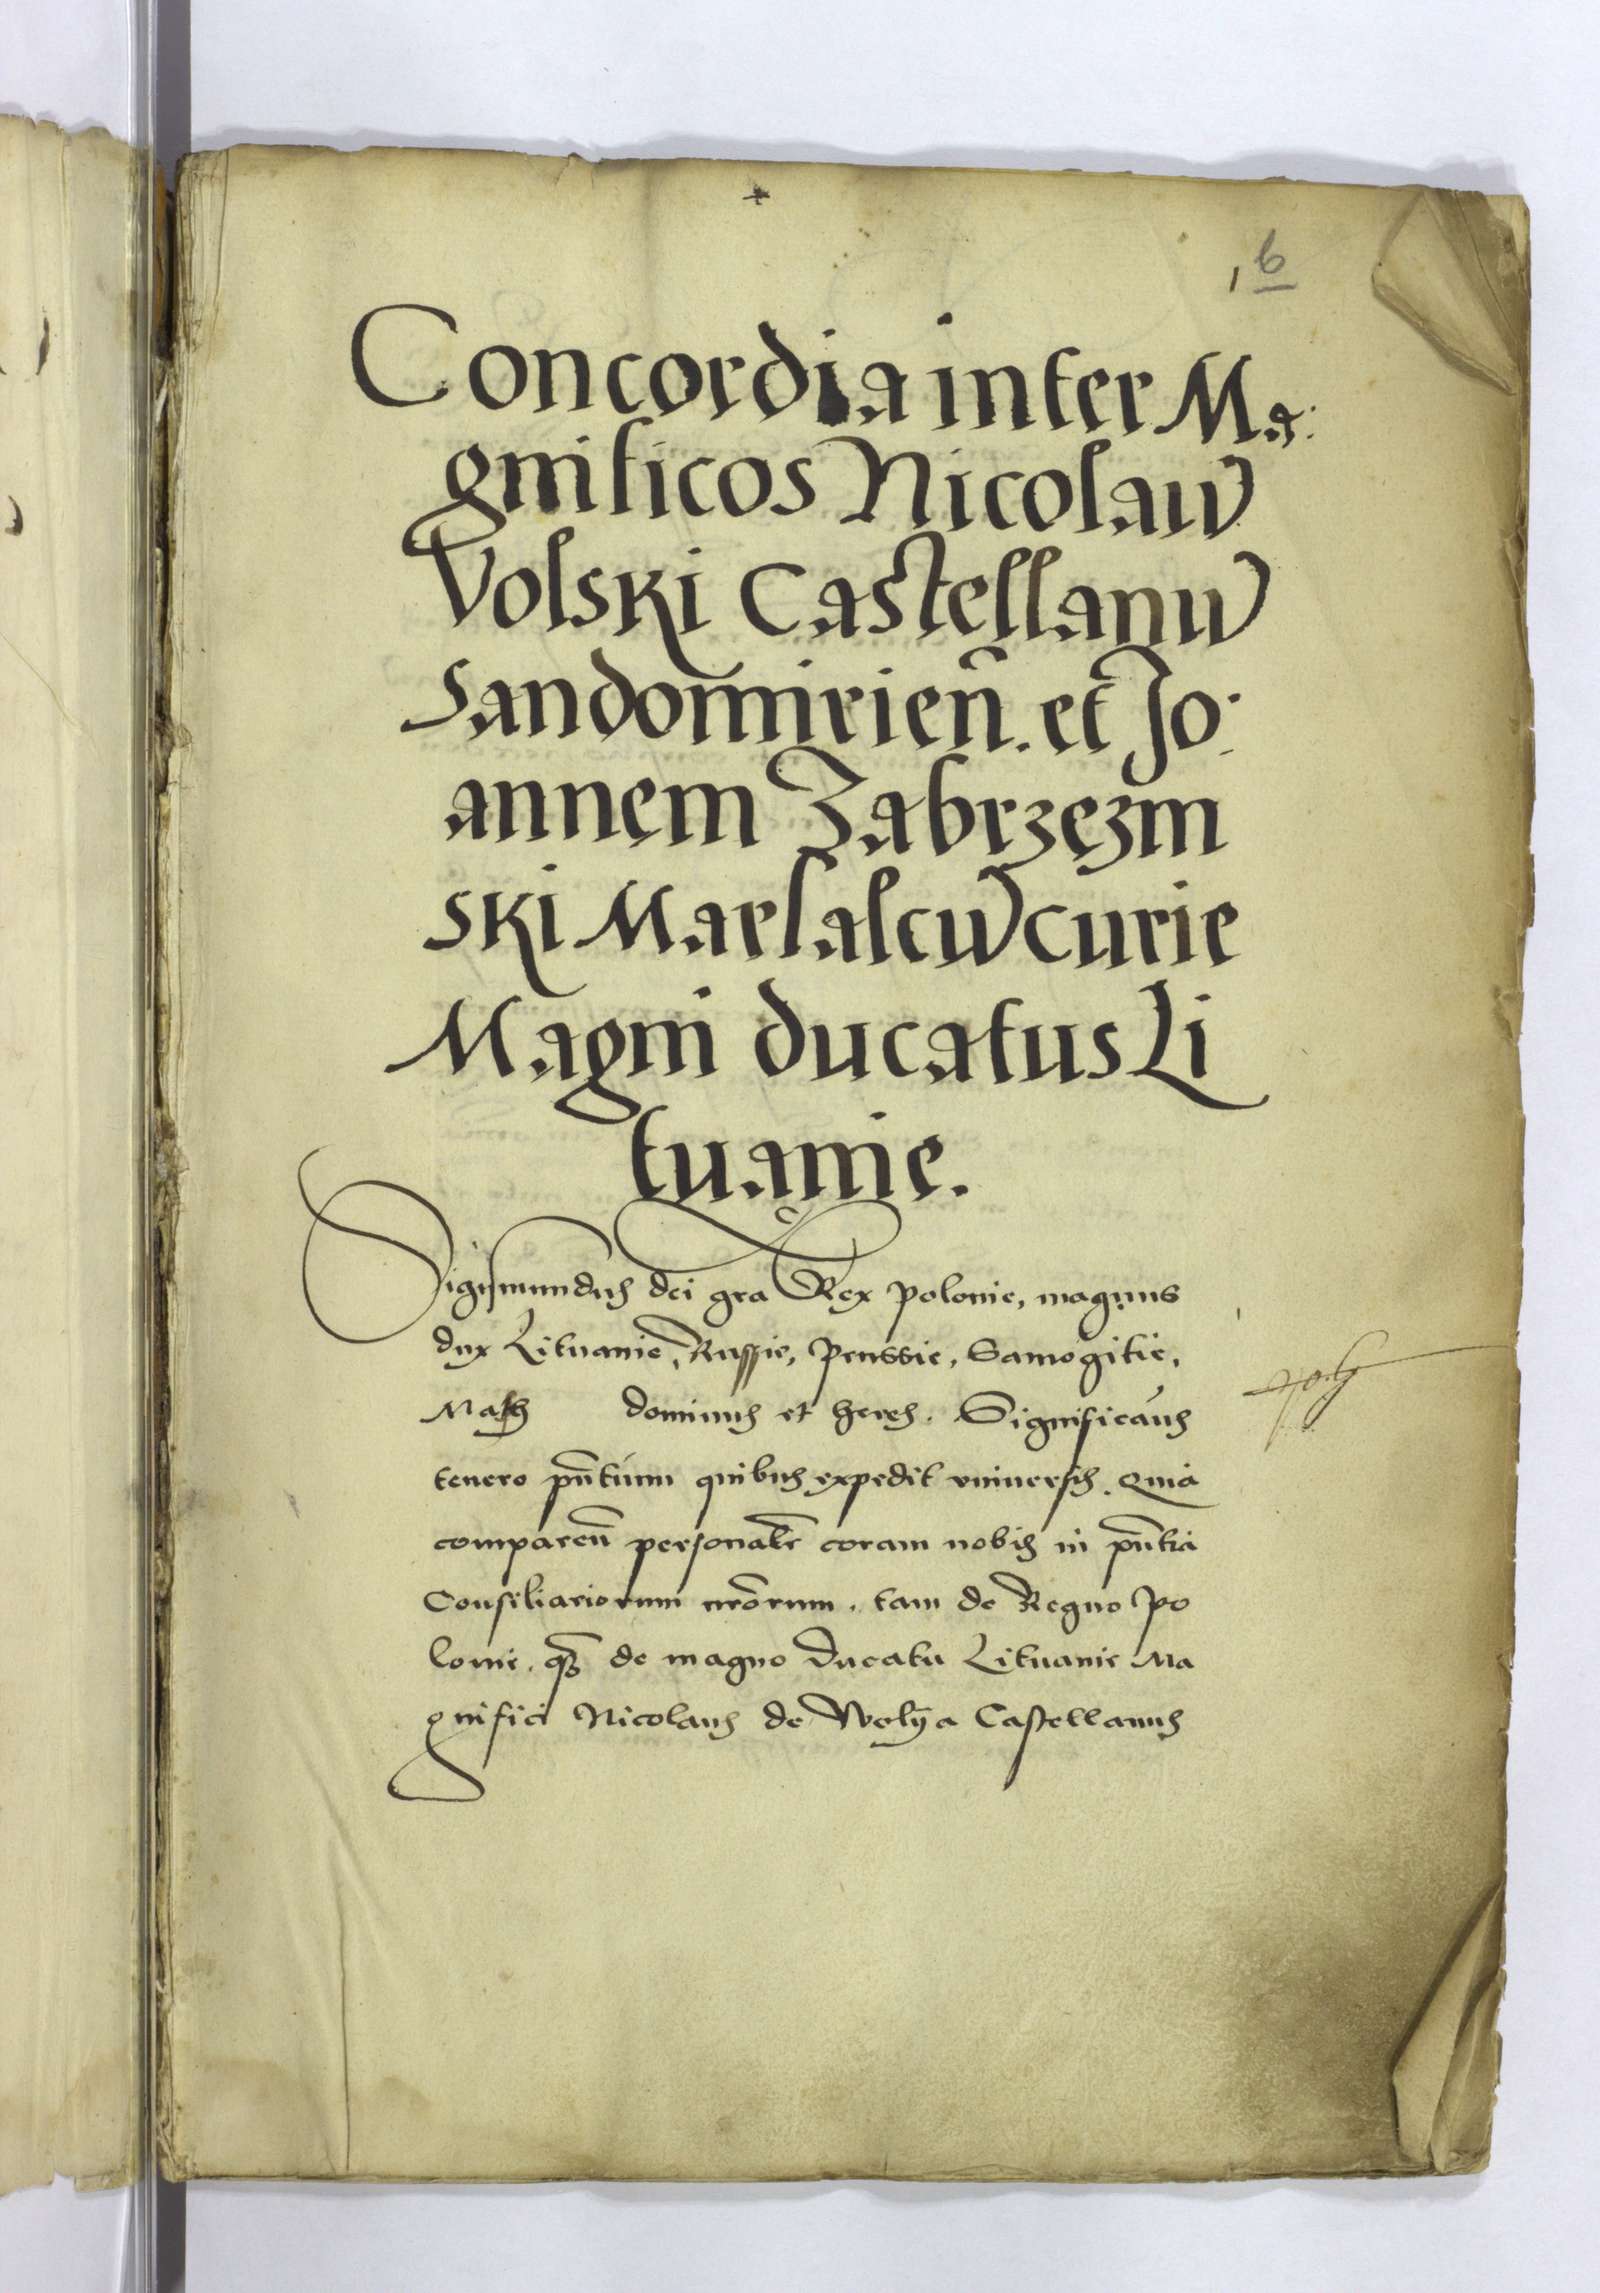 1 6
Concordia inter Ma:
gnificos Nicolaum
Volski Castellanum
Sandomirieñ. et Jo:
annem Zabrzezin
ski Marsalcum curie
Magni ducatus Li
tuanie.
Sigismundus dei gra Rex Polonie, magnus
dux Lituanie, Russie, Prussie, Samogitie,
Maso dominus et heres. Significamus
tenore pñtium quibus expedit universis. Quia
compareñ personalr coram nobis in pñtia
Consiliariorum nrorum, tam de Regno Po
lonie, q̃ de magno Ducatu Lituanie Ma
gnifici Nicolaus de Wolya Castellanus